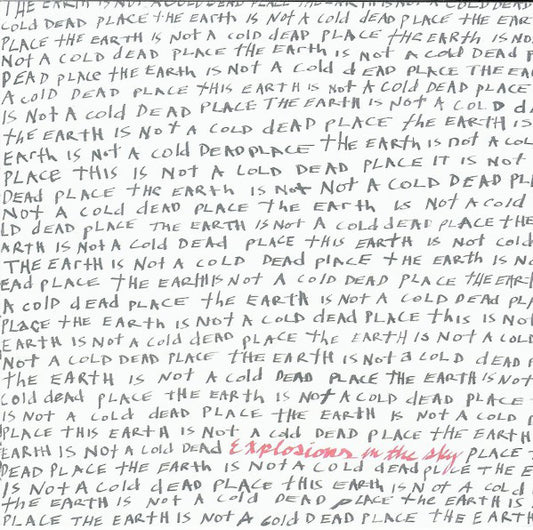 THE EARTH IS NOT A COLD DEAD PLACE THE EARTH IS NOT A COLD DEAD
COLD DEAD PLACE THE EARTH IS NOT A COLD DEAD PLACE THE EAR
PLACE THE EARTH IS NOT A COLD DEAD PLACE THE EARTH IS NO
NOT A COLD DEAD PLACE THE EARTH IS NOT A COLD DEAD P
DEAD PLACE THE EARTH IS NOT A COLD DEAD PLACE THE EA
A COLD DEAD PLACE THIS EARTH IS NOT A COLD DEAD PLACE
IS NOT A COLD DEAD PLACE THE EARTH IS NOT A COLD D
THE EARTH IS NOT A COLD DEAD PLACE THE EARTH IS
EARTH IS NOT A COLD DEAD PLACE THE EARTH IS NOT A COL
PLACE THIS IS NOT A COLD DEAD PLACE IT IS NOT
DEAD PLACE THE EARTH IS NOT NOT A COLD DEAD PL
NOT A COLD DEAD PLACE THE EARTH IS NOT A COLD
LD DEAD PLACE THE EARTH IS NOT A COLD DEAD PLACE THE
ARTH IS NOT A COLD DEAD PLACE THIS EARTH IS NOT COLD
THE EARTH IS NOT A COLD DEAD PLACE THE EARTH IS NO
EAD PLACE THE EARTH IS NOT A COLD DEAD PLACE THE EAR
A COLD DEAD PLACE THE EARTH IS NOT A COLD DEAD PL
PLACE THE EARTH IS NOT A COLD DEAD PLACE THIS IS NO
EARTH IS NOT A COLD DEAD PLACE THE EARTH IS NOT A COLD
NOT A COLD DEAD PLACE THE EARTH IS NOT A COLD DEAD P
THE EARTH IS NOT A COLD DEAD PLACE THE EARTH IS NOT
COLD DEAD PLACE THE EARTH IS NOT A COLD DEAD PLACE
IS NOT A COLD DEAD PLACE THE EARTH IS NOT A COLD
PLACE THIS EARTH IS NOT A COLD DEAD PLACE THE EARTH
EARTH IS NOT A COLD DEAD Explosions in the sky PLACE T
DEAD PLACE THE EARTH IS NOT A COLD DEAD PLACE THE E
IS NOT A COLD DEAD PLACE THIS EARTH IS NOT A COLD
THE EARTH IS NOT A COLD DEAD PLACE THE EARTH IS
PLACE THE EARTH IS NOT A COLD DEAD PLACE THE EARTH